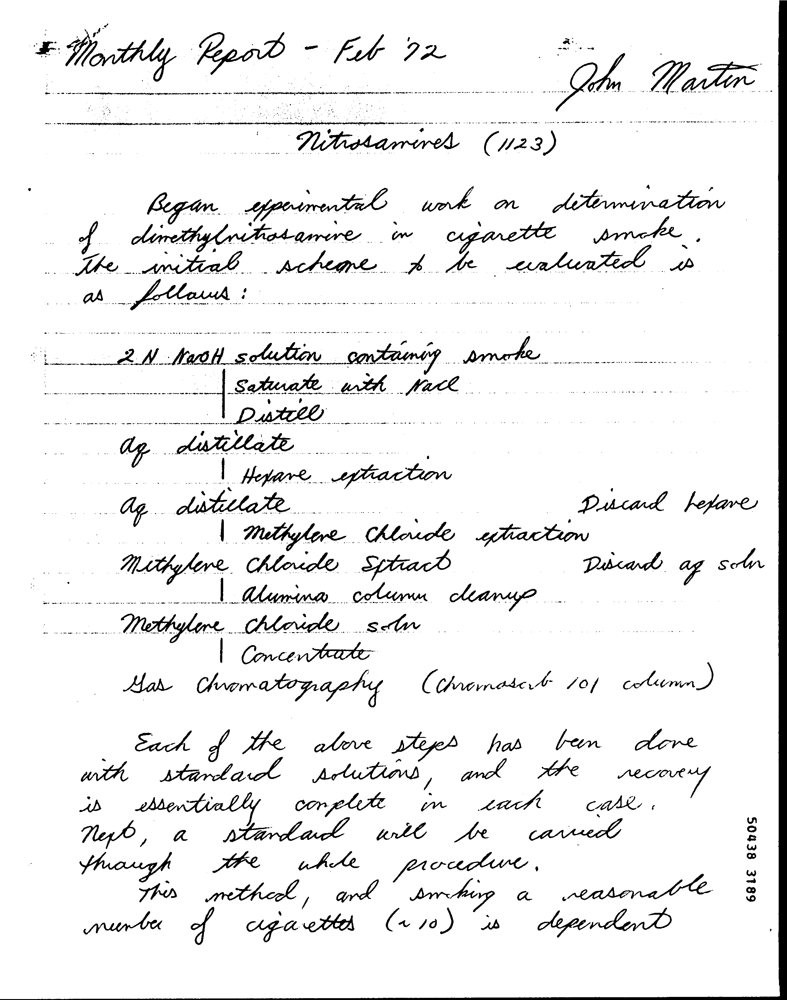 Monthly Report - Feb '72
John Martin
Nitrosamines (1123)
Began experimental work on determination
of dimethylnitrosamine in cigarette smoke.
The initial scheme to be evaluated is
as follows:
2 N NaOH solution containing smoke
Saturate with NaCl
Distill
Aq distillate
Hexane extraction
Aq distillate Discard hexane
Methylene Chloride extraction
Methylene Chloride Extract Discard aq soln
Alumina column cleanup
Methylene Chloride soln
Concentrate
Gas Chromatography (Chromosorb 101 column)
Each of the above steps has been done
with standard solutions, and the recovery
is essentially complete in each case.
Next, a standard will be carried
through the whole procedure.
This method, and smoking a reasonable
number of cigarettes (~10) is dependent
50438 3189